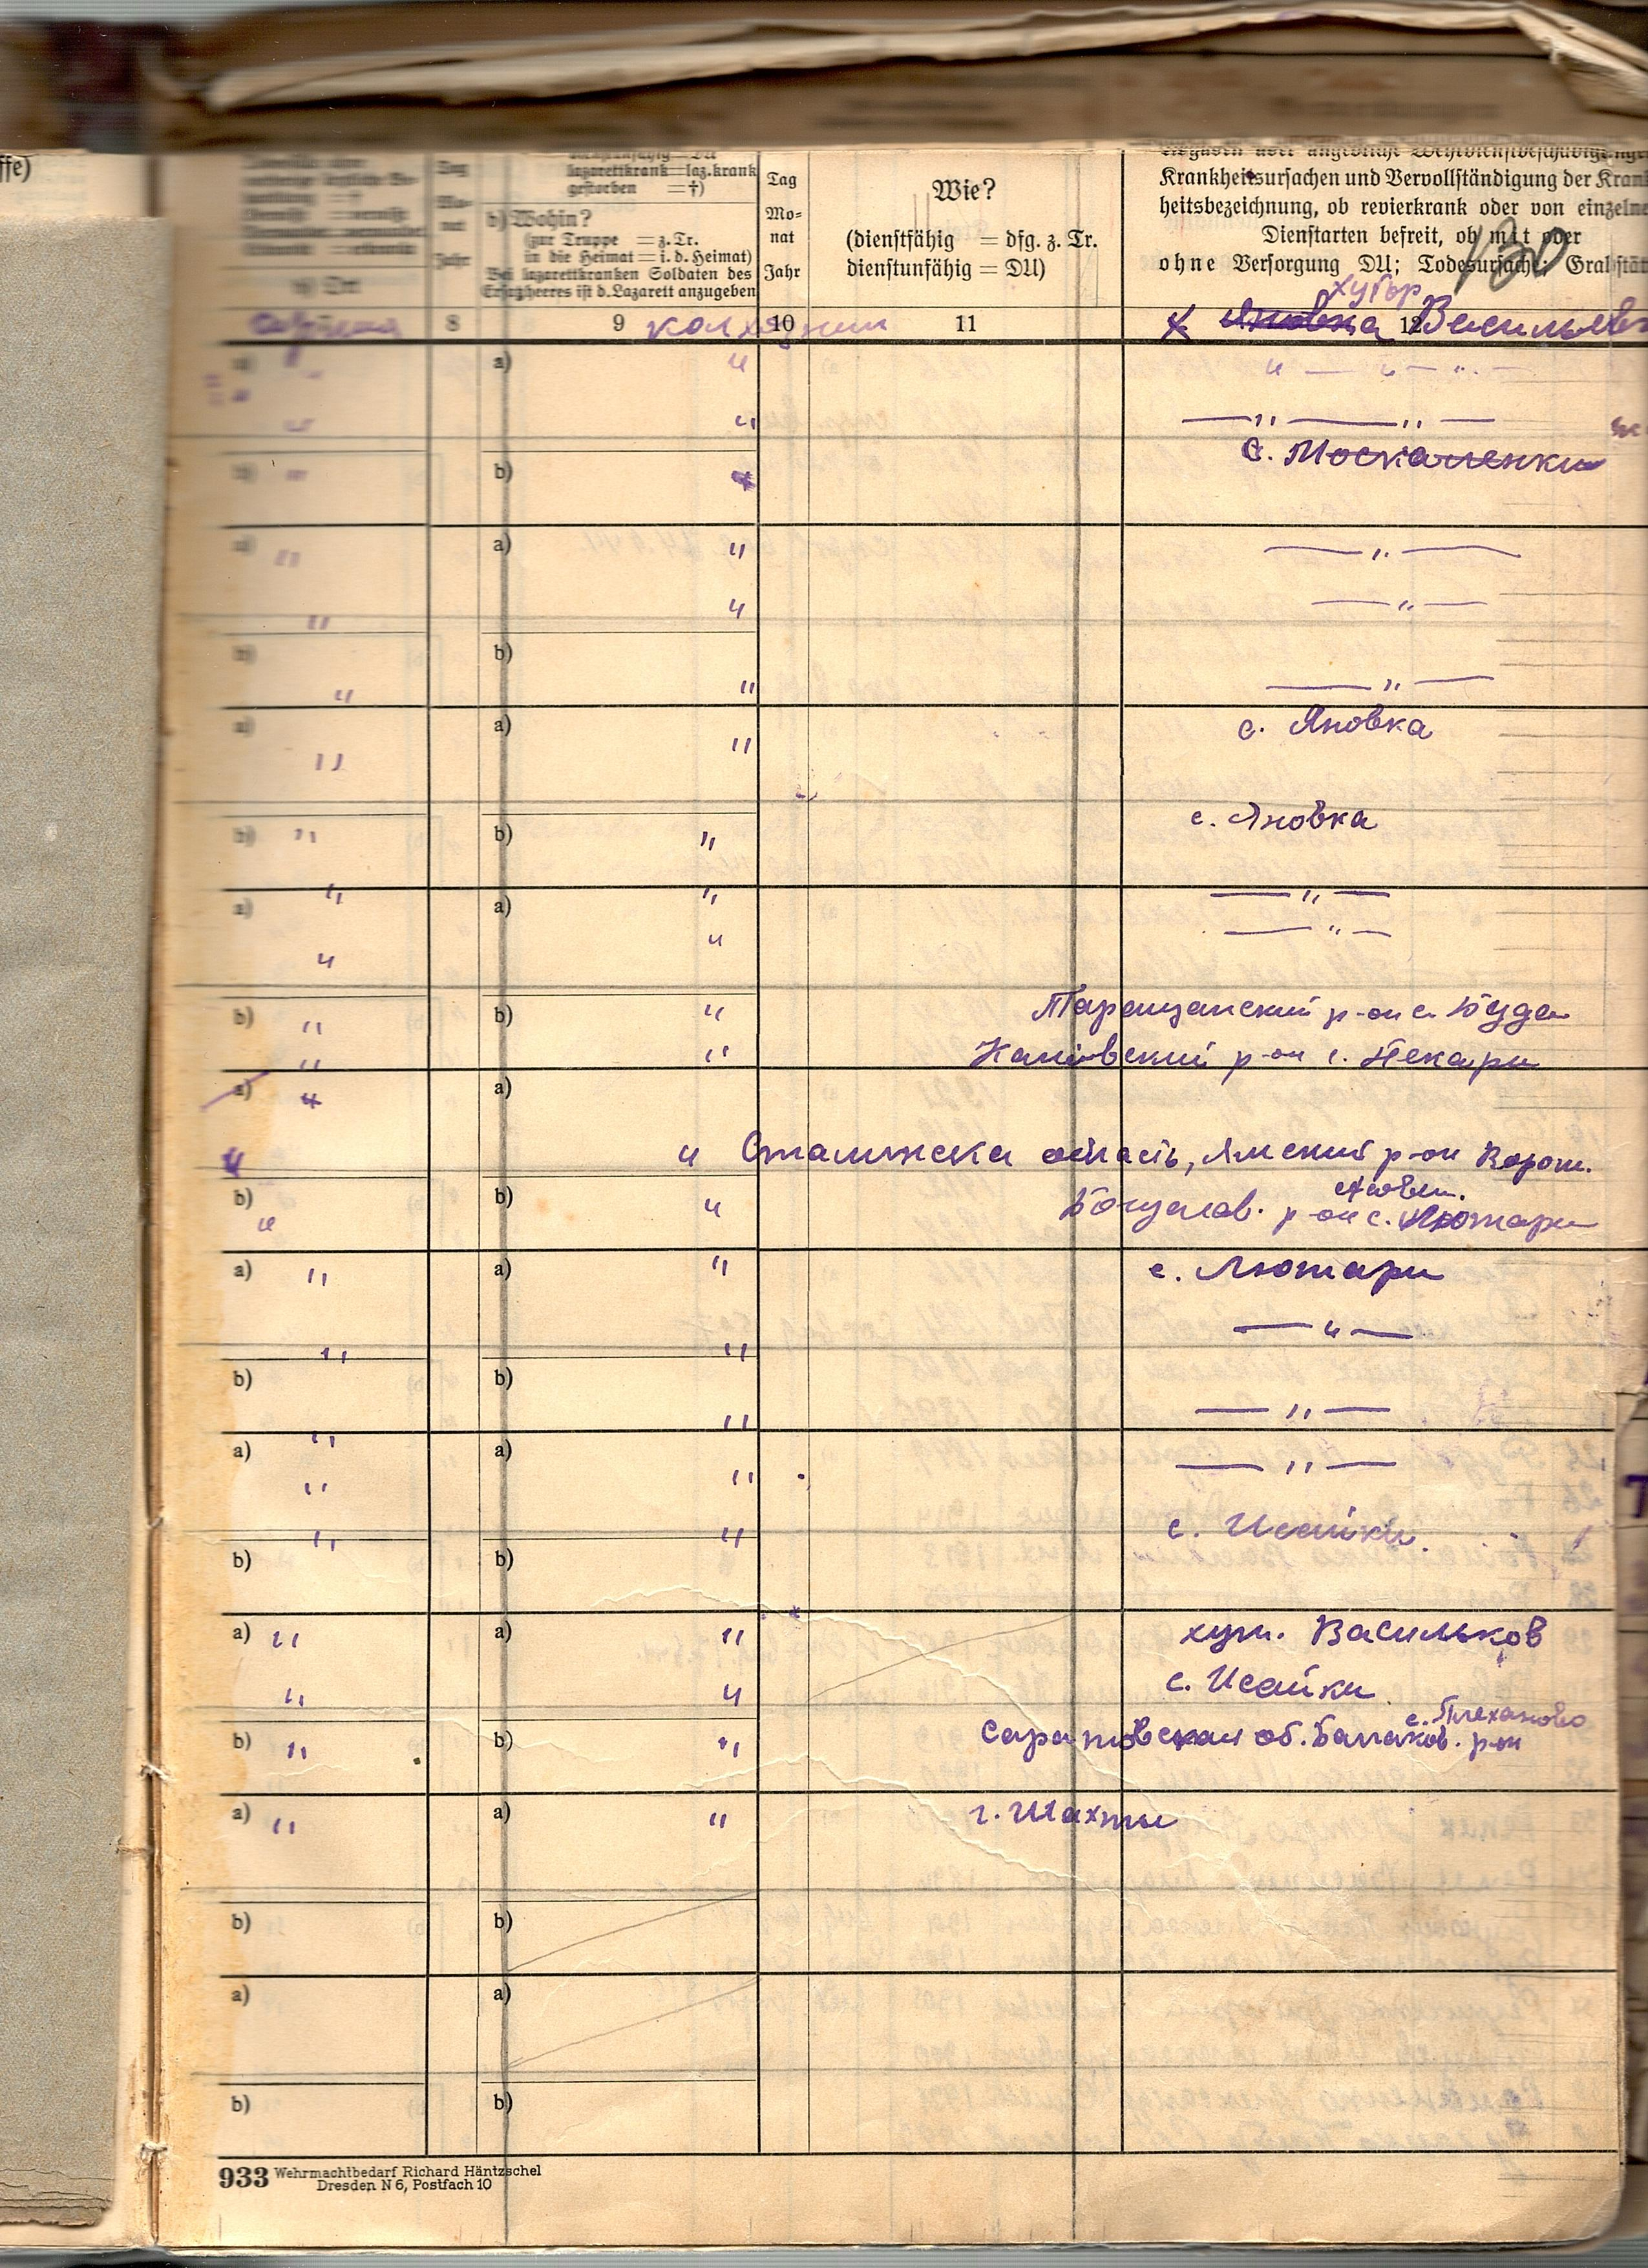 ffe)
lazarettkrank=laz.krank
gestorben =†)
b) Wohin?
(zur Truppe = z. Tr.
in die Heimat = i. d. Heimat)
Bei lazarettkranken Soldaten des
Ersatzheeres ist d. Lazarett anzugeben
Tag
Mo-
nat
Jahr
Wie?
(dienstfähig = dfg. z. Tr.
dienstunfähig = DU)
Krankheitsursachen und Vervollständigung der Krank
heitsbezeichnung, ob revierkrank oder von einzelne
Dienstarten befreit, ob mit oder
ohne Versorgung DU; Todesursache; Grabstät
хутор
8 9 колхозник 10 11 х Яновка 12 Васильев
a) " a) " " — " —
" " — " — " —
с. Москаленки
b) " b) "
a) " a) " — " —
" " — " —
b) b)
" " — " —
a) a) с. Яновка
" "
с. Яновка
b) " b) "
" " — " —
a) a)
" " — " —
b) " b) " Таращанский р-он с. Буда
" " Каневский р-он с. Пекари
a) " a)
" " Сталинска область, Ямский р-он Ворош.
b) b) " Богуслав. р-он с. Лютари
"
a) " a) " с. Лютари
— " —
" "
b) b)
" — " —
a) " a)
" " — " —
" " с. Исайки.
b) b)
a) " a) " хут. Васильков
" " с. Исайки
с. Плеханово
b) " b) " Саратовская об. Балаков. р-он
a) " a) " г. Шахты
b) b)
a) a)
b) b)
933 Wehrmachtbedarf Richard Häntzschel
Dresden N 6, Postfach 10